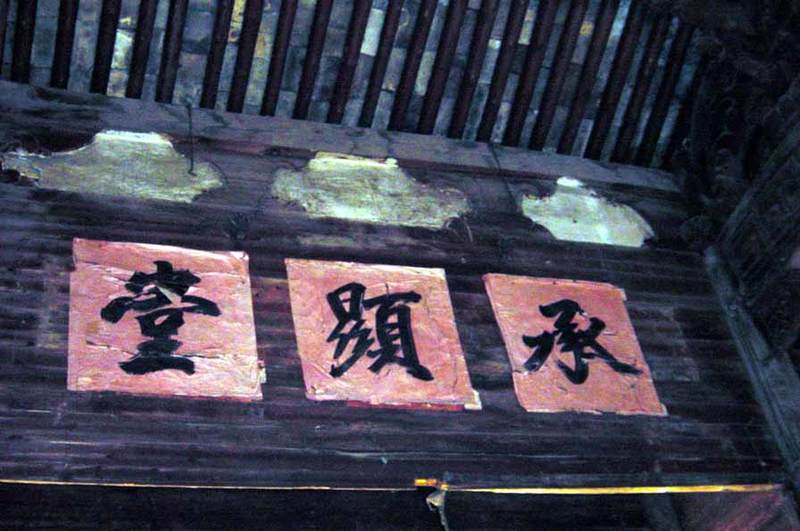 承顯堂